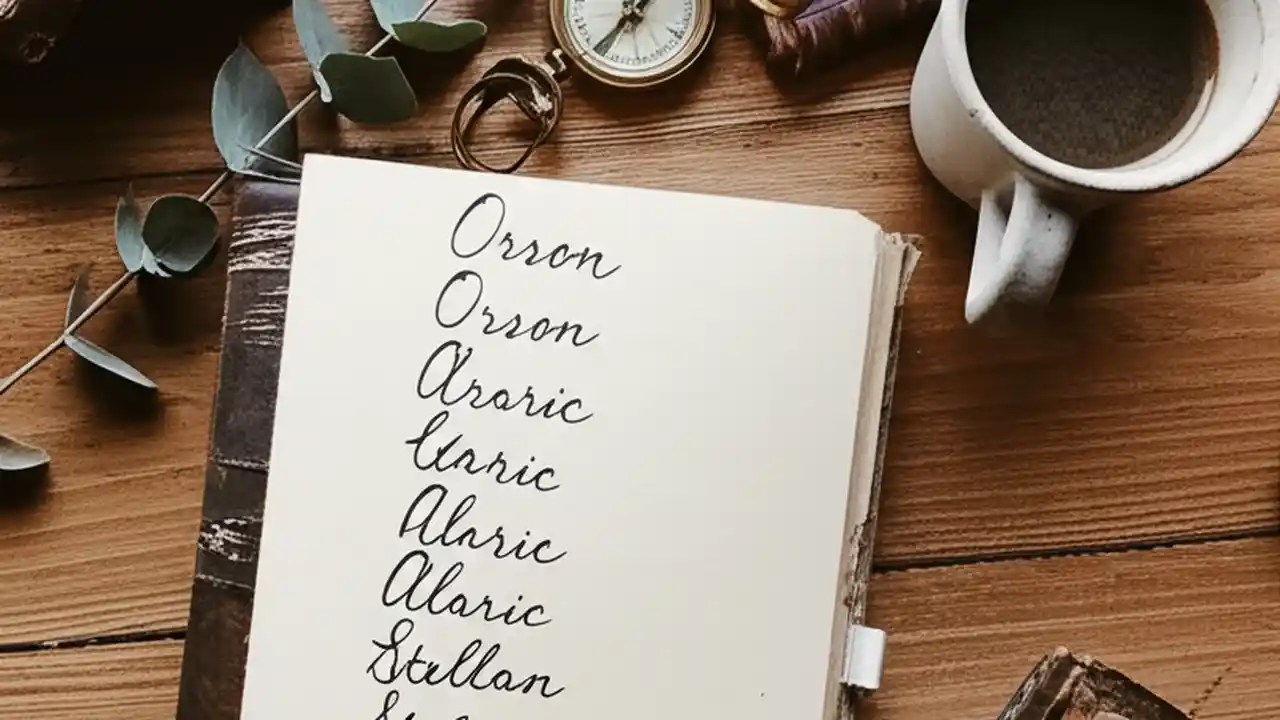 Orson
Orson
Araric
Alaric
Alaric
Stellan